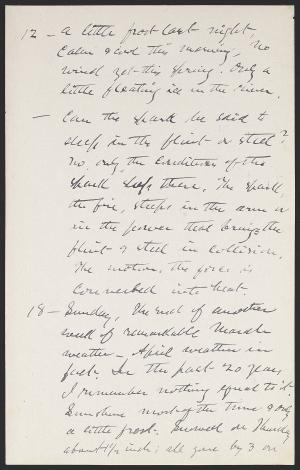 12 - A little frost last night,
Calm & cool this morning, no
wind yet this spring. Only a
little floating ice in the river.
- Can the spark be said to
sleep in the flint or steel?
No, only the condition of the
spark sleeps there. The spark,
the fire, sleeps in the arm or
in the power that brings the
flint & steel in collision.
The motion, the force is
converted into heat.
18 - Sunday, the end of another
week of remarkable March
weather - April weather in
fact. In the past 20 years
I remember nothing equal to it.
Sunshine most of the time & only
a little frost. Snowed on Thursday
about 1/2 inch; all gone by 3 on